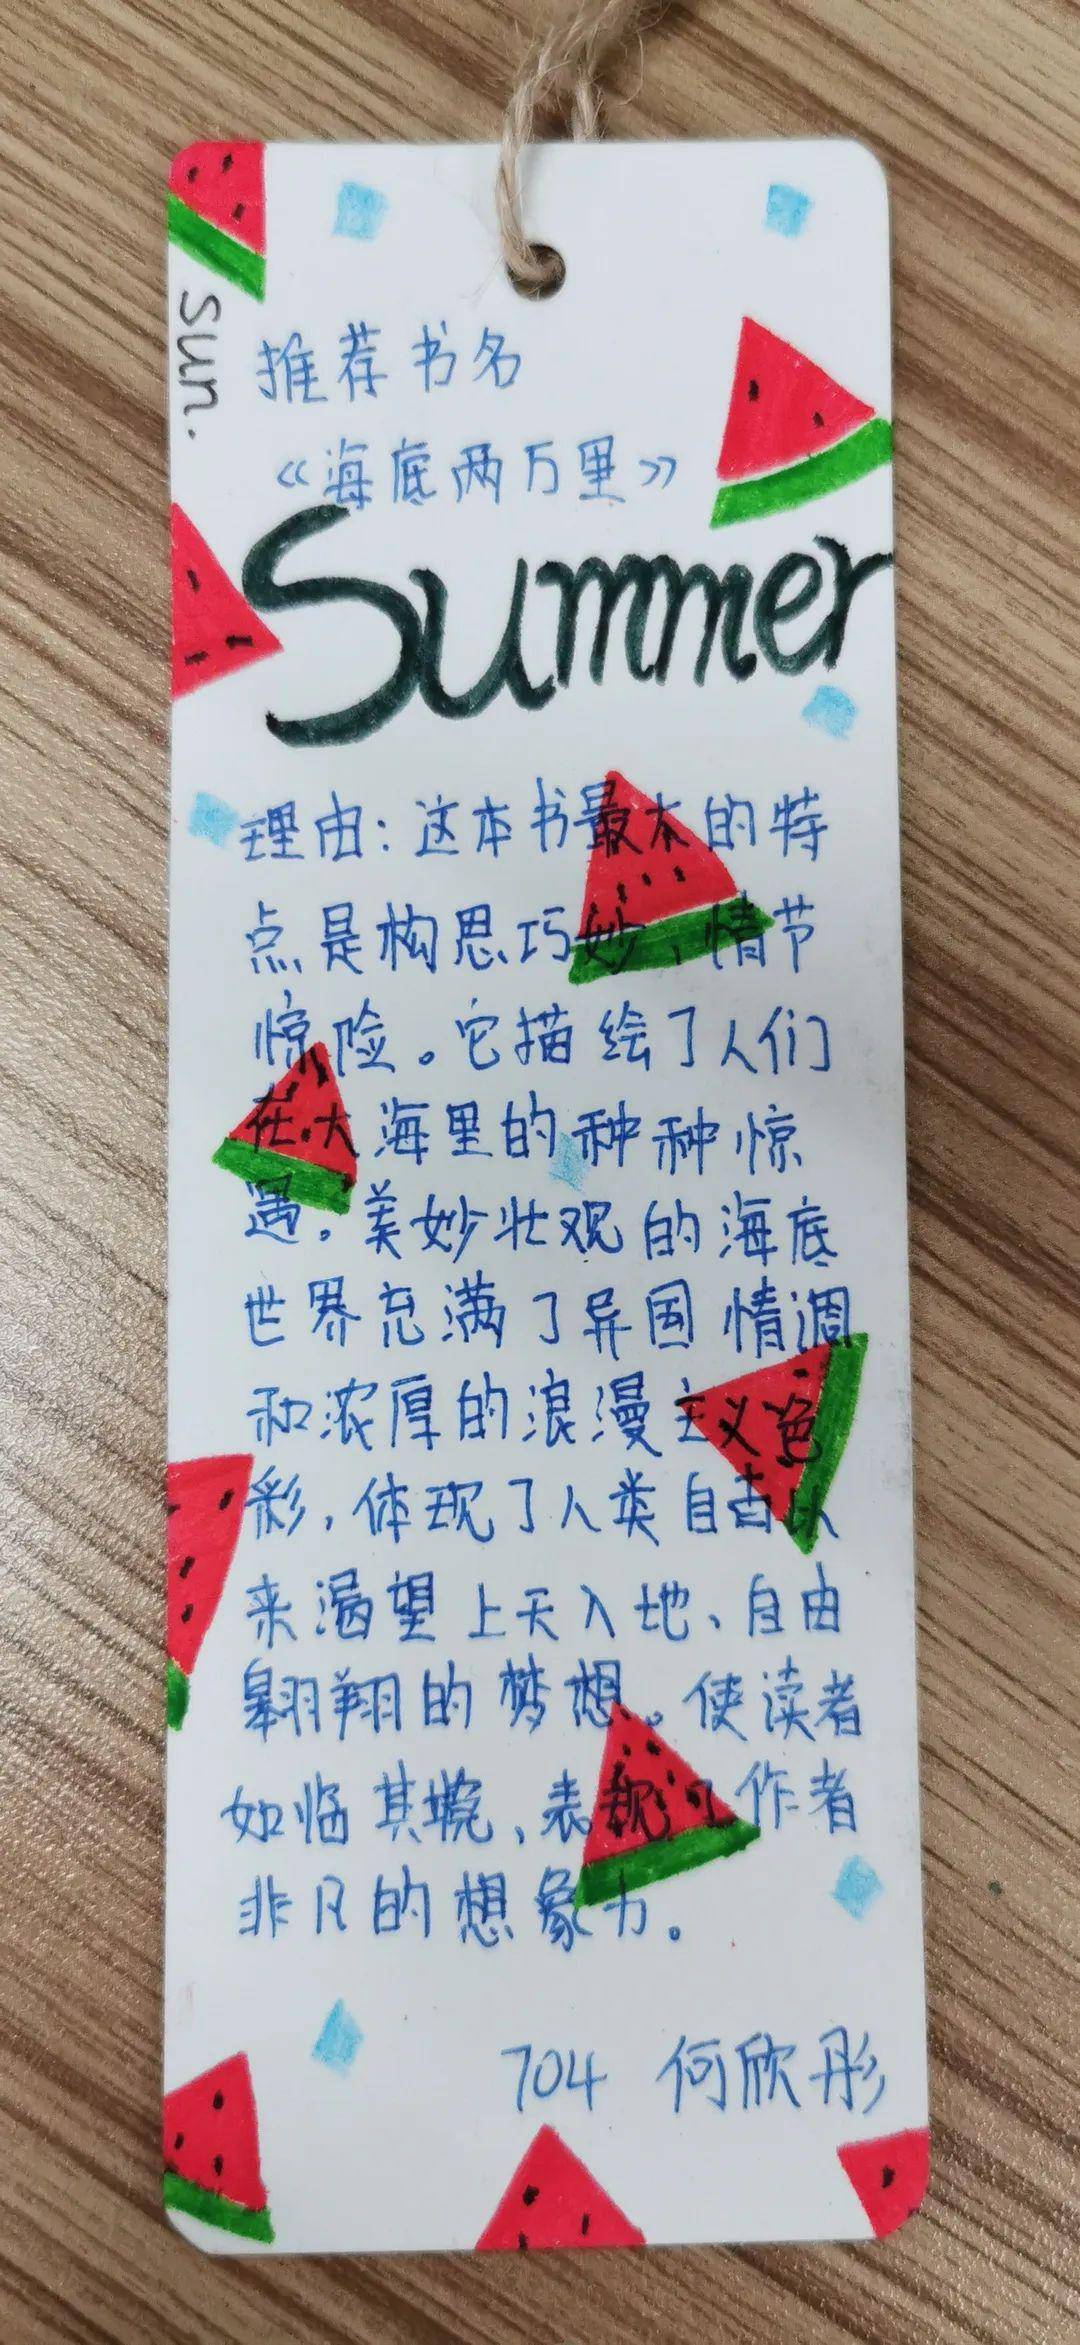 Sun.
推荐书名
《海底两万里》
Summer
理由：这本书最大的特
点是构思巧妙，情节
惊险。它描绘了人们
在大海里的种种惊
遇。美妙壮观的海底
世界充满了异国情调
和浓厚的浪漫主义色
彩，体现了人类自古以
来渴望上天入地、自由
翱翔的梦想。使读者
如临其境，表现了作者
非凡的想象力。
704 何欣彤